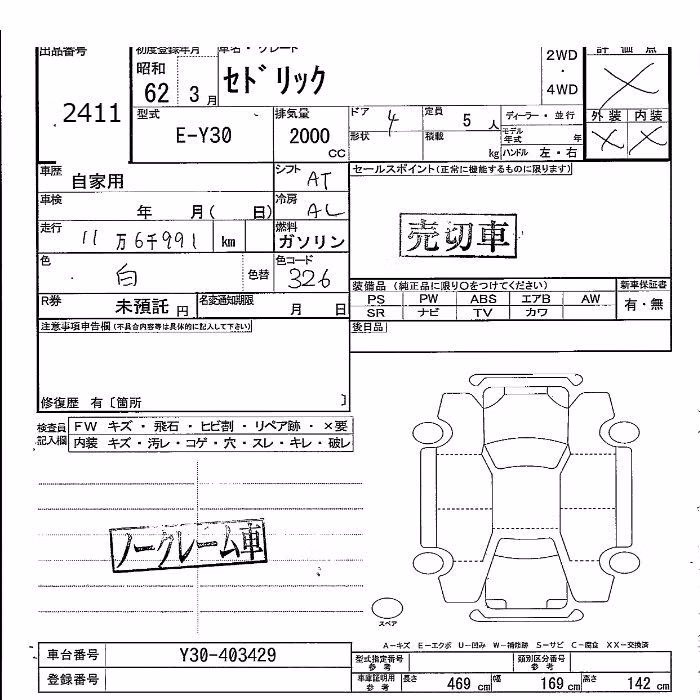 出品番号 初度登録年月 車名・グレード 2WD 評価点
昭和 ・
62 3月 セドリック 4WD
2411 型式 排気量 ドア 4 定員 5人 ディーラー・並行 外装 内装
E-Y30 2000 cc 形状 積載 kg モデル年式 年
ハンドル 左・右
車歴 自家用 シフト AT セールスポイント(正常に機能するものに限ります)
車検 年 月( 日) 冷房 AC
走行 11万6千991 km 燃料 ガソリン 売切車
色 白 色替 色コード 326
装備品 (純正品に限り○をつけてください) 新車保証書
R券 未預託 円 名変通知期限 月 日 PS PW ABS エアB AW 有・無
SR ナビ TV カワ
注意事項申告欄(不具合内容等は具体的に記入して下さい) 後日品
修復歴 有〔箇所 〕
検査員 FW キズ・飛石・ヒビ割・リペア跡・×要
記入欄 内装 キズ・汚レ・コゲ・穴・スレ・キレ・破レ
ノークレーム車
スペア
A-キズ E-エクボ U-凹み W-補修跡 S-サビ C-腐食 XX-交換済
車台番号 Y30-403429 型式指定番号 参考 類別区分番号 参考
登録番号 車庫証明用 参考 長さ 469cm 幅 169cm 高さ 142cm